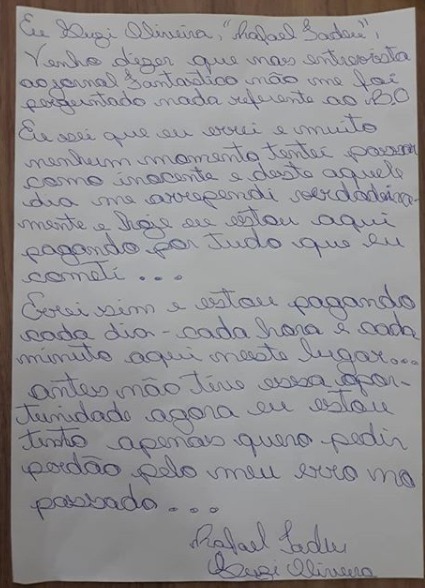 Eu Suzi Oliveira, "Rafael Tadeu",
Venho dizer que nas entrevista
ao jornal Fantastico não me foi
perguntado nada referente ao BO
Eu sei que eu errei e muito
nenhum momento tentei passar
como inocente e deste aquele
dia me arrependi verdadeira-
mente e hoje eu estou aqui
pagando por tudo que eu
cometi ...
Errei sim e estou pagando
cada dia - cada hora e cada
minuto aqui neste lugar...
antes não tive essa opor-
tunidade agora eu estou
tisto apenas quero pedir
perdão pelo meu erro no
passado ...
Rafael Tadeu
Suzi Oliveira